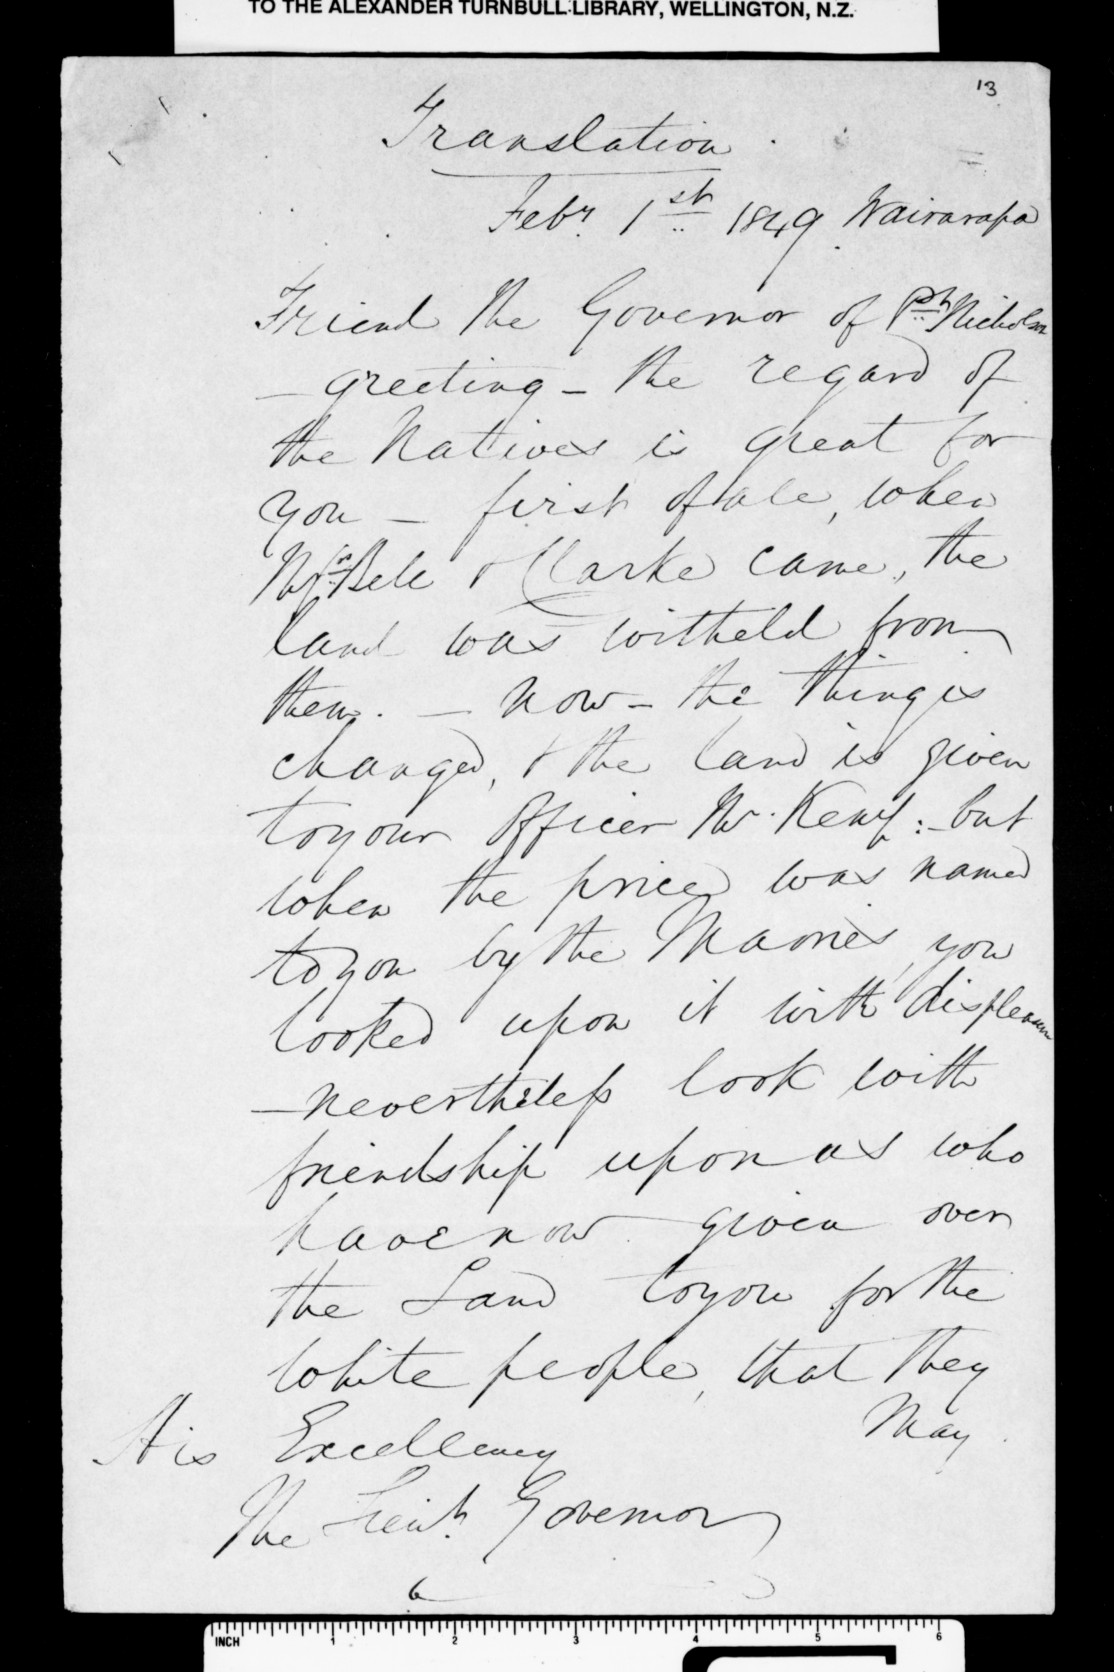 TO THE ALEXANDER TURNBULL LIBRARY, WELLINGTON, N.Z.
13
Translation
Feby 1st 1849 Wairarapa
Friend the Governor of Pt Nicholson
— greeting — the regard of
the Natives is great for
you — first of all, when
Mrs Bell & Clarke came, the
land was witheld from
them. — Now — the thing is
changed, & the land is given
to your Officer Mr. Kemp : — but
when the price was named
to you by the Maories, you
looked upon it with displeasure
— nevertheless look with
friendship upon us who
have now given over
the Land to you for the
White people, that they
May
His Excellency
The Lieut. Governor
INCH 1 2 3 4 5 6